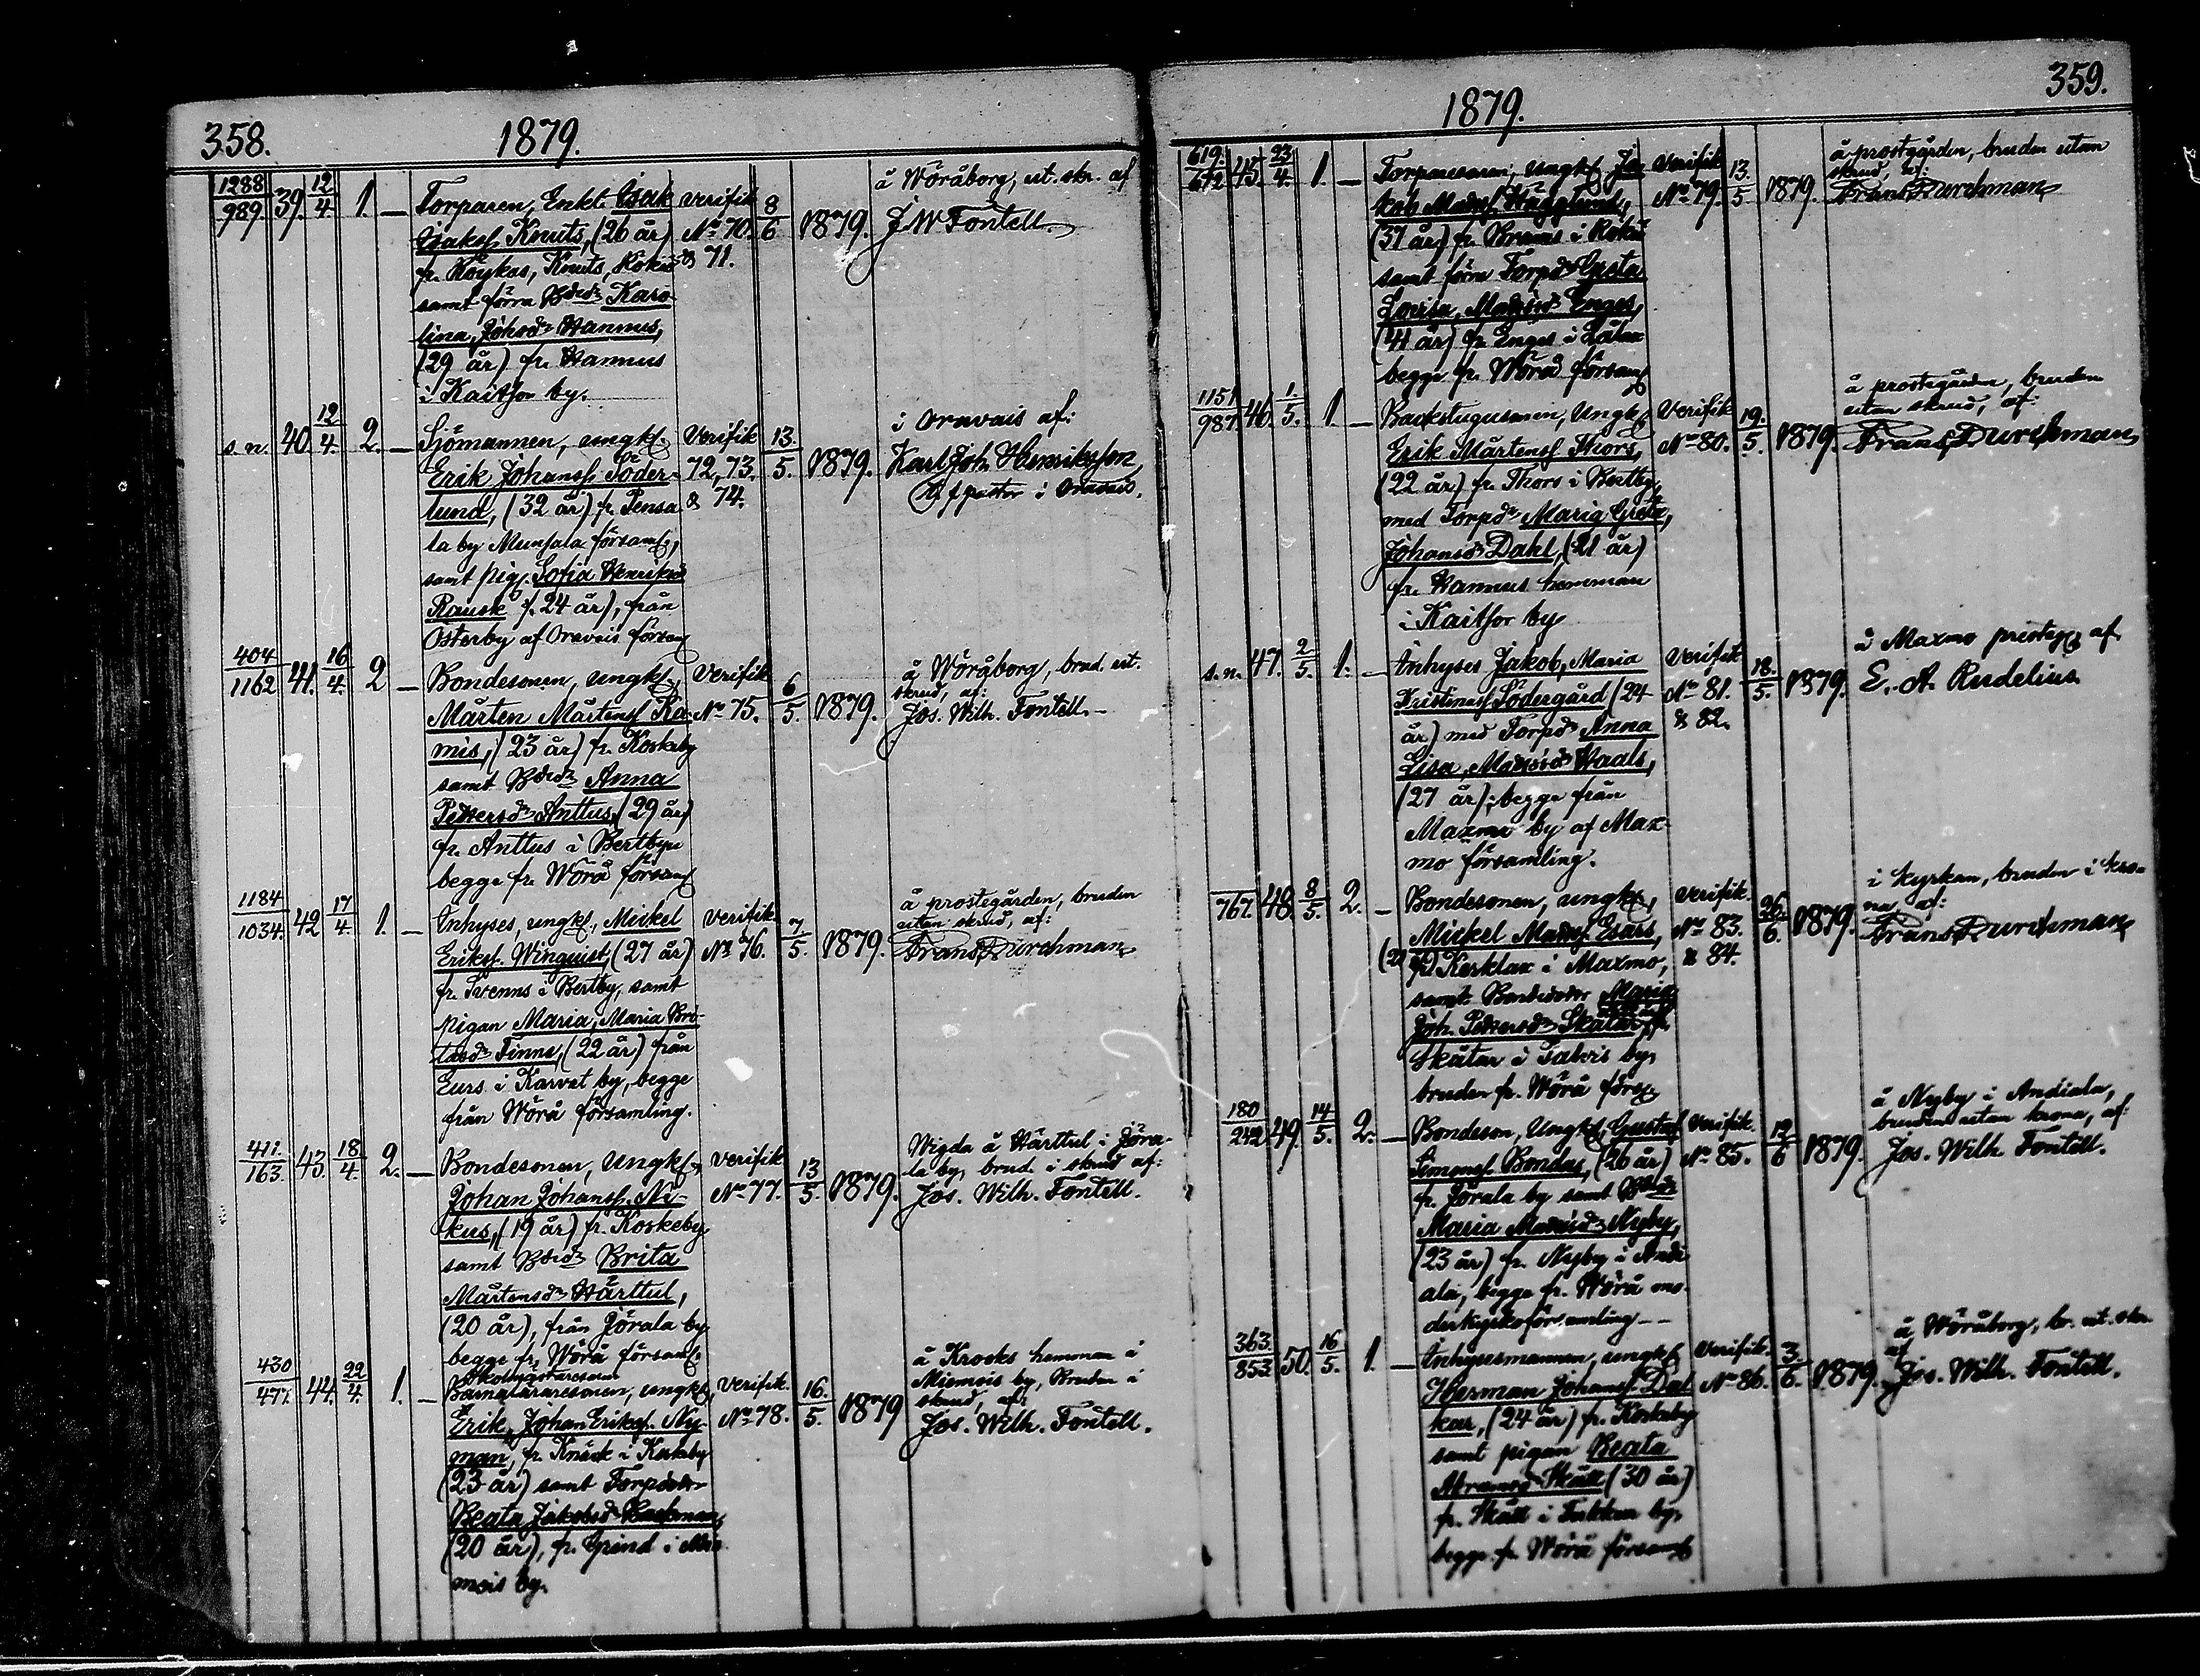 358.
1879.
1288
989
39.
12
4
1.
Torparen, Enkl. Isak
Isakss. Knuts, (26 år)
fr. Röykas, Knuts, Rökiö
samt förra Bdedr Karo
lina, Johsdr Hannus,
(29 år) fr. Hannus
i Kaitsor by.
Verifik
No 70.
& 71.
8
6
1879.
å Wöråborg, ut. skr. af
J. W Fontell
s. n.
40.
12
4
2.
Sjömannen, ungk.
Erik Johanss. Söder-
lund, (32 år) fr. Pensa
la by Munsala församl,
samt pig. Sofia Henriksd
Rausk f. 24 år), från
Österby af Oravais försam
Verifik
72, 73.
& 74.
13.
5.
1879.
i Oravais af:
Karl Joh. Henriksson,
pastor i Oravais.
404
1162
41.
16
4.
2
Bondesonen, ungkl,
Mårten Mårtenss Ra-
mis, (23 år) fr. Koskeby
samt Bdedr Anna
Pettersdr Anttus, (29 år)
fr. Anttus i Bertbyn
begge fr. Wörå församl
Verifik
No 75.
6
5.
1879.
å Wöråborg, brud. ut.
skrud, af:
Jos. Wilh. Fontell.
1184
1034.
42
17
4.
1.
Inhyses, ungk, Mickel
Erikss. Winquist, (27 år)
fr. Svenns i Bertby, samt
pigan Maria, Maria Bri-
tasdr Finne, (22 år) från
Eurs. i Karvat by, begge
från Wörå församling.
Verifik.
No 76.
7
5.
1879.
å prostegården, bruden
utan skrud, af:
Frans Durchman
411.
163.
43.
18
4.
2.
Bondesonen, Ungkl.,
Johan Johanss. Ni-
kus, (19 år) fr. Koskeby
samt Bdedr Brita
Mårtensdr Härttul,
(20 år), från Jörala by
begge fr. Wörå församl.
Verifik
No 77.
13
5.
1879.
Wigda å Härttul i Jöra-
la by, brud. i skrud af:
Jos. Wilh. Fontell.
430
477.
44.
22
4.
1.
Skolmästaresson
Barnalararesonen, ungkl
Erik, Johan Erikss. Ny-
man, fr. Knäck i Koskeby
(23 år) samt Torpedotr
Beata Jakobsdr Backman,
(20 år), fr. Grind i Mie
mois by.
Verifik.
No 78.
16.
5.
1879
å Krooks hemman i
Miemois by, Bruden i
skrud, af:
Jos. Wilh. Fontell.
359.
1879.
619.
672
45
23
4.
1.
Torparesonen, ungk. Ja
kob Madss. Hägglund,
(37 år) fr. i Rökiö
samt förra Torpdr Greta
Lovisa, Madsdr Enges,
(41 år) fr. Enges i
begge fr. Wörå församl
Verifik
No 79.
13.
5
1879.
å prostgården, bruden utan
skrud, af:
Frans Durchman
1151
987.
46.
1
5.
1.
Backstugusonen, Ungk.
Erik Mårtenss Thors,
(22 år) fr. Thors i Bertby,
med Torpdr Maria Greta,
Johansdr Dahl, (21 år)
fr. Hannus hemman
i Kaitsor by
Verifik
No 80.
19.
5.
1879.
å prostegården, bruden
utan skrud, af:
Frans Durchman
s. n.
47.
2
5.
1.
Inhyses Jakob, Maria
Kristinass Södergård (24
år) med Torpdr Anna
Lisa, Madsdr Haals,
(27 år), begge från
Maxmo by af Max-
mo församling.
Verifik
No 81.
& 82.
18.
5.
1879.
å Maxmo prosteg. af
E. A. Rudelius
767.
48.
8
5.
2.
Bondesonen, ungk.,
Mickel Madss. Esars,
fr. Kerklax i Maxmo,
samt Bondedotr Maria
Joh. Pettersdr Skåtar, fr.
Skåtar i by,
bruden fr. Wörå förs.
Verifik.
No 83.
& 84.
26
6.
1879.
i kyrkan, bruden i kro-
na, af:
Frans Durchman
180
242
49.
14
5.
2.
Bondeson, Ungk, Gustaf
Simonss. Bondas, (26 år)
fr. Jörala by samt Bdedr
Maria Madsdr Nyby,
(23 år) fr. Nyby i Andi
ala, begge fr. Wörå mo-
derkyrkoförsamling
Verifik.
No 85.
19
6
1879.
å Nyby i Andiala,
bruden utan krona, af:
Jos. Wilh. Fontell.
363.
853
50.
16
5.
1.
Inhysesmannen, ungk.
Herman Johanss. Dal
kar, (24 år) fr. Koskeby
samt pigan Beata
Abramsdr Skätt (30 år)
fr. Skätt i by,
begge fr. Wörå församl
Verifik.
No 86.
3
6.
1879.
å Wöråborg, br. ut. skr.
af
Jos. Wilh. Fontell.